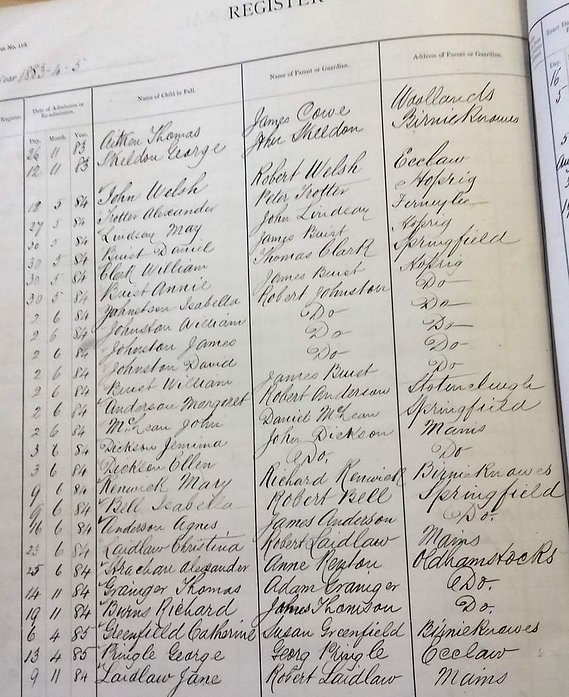 REGISTER
Year 1883-4-5
Date of Admission or Re-admission. Name of Child in Full. Name of Parent or Guardian. Address of Parent or Guardian.
Day. Month. Year.
26 11 83 Aitken Thomas James Cowe Woollands
12 11 83 Skeldon George John Skeldon Birnieknowes
18 5 84 John Welsh Robert Welsh Ecclaw
27 5 84 Trotter Alexander Peter Trotter Hoprig
30 5 84 Lindsay May John Lindsay Fernylee
30 5 84 Buist Daniel James Buist Hoprig
30 5 84 Clark William Thomas Clark Springfield
30 5 84 Buist Annie James Buist Hoprig
2 6 84 Johnston Isabella Robert Johnston Do
2 6 84 Johnston William Do Do
2 6 84 Johnston James Do Do
2 6 84 Johnston David Do Do
2 6 84 Buist William James Buist Do
2 6 84 Anderson Margaret Robert Anderson
2 6 84 McLean John Daniel McLean Springfield
3 6 84 Dickson Jemima John Dickson Mains
3 6 84 Dickson Ellen Do. Do
9 6 84 Renwick Mary Richard Renwick Birnieknowes
9 6 84 Bell Isabella Robert Bell Springfield
16 6 84 Anderson Agnes James Anderson Do.
23 6 84 Laidlaw Christina Robert Laidlaw Mains
25 6 84 Strachan Alexander Anne Renton Oldhamstocks
14 11 84 Grainger Thomas Adam Grainger Do.
19 11 84 Burns Richard James Thomson Do.
6 4 85 Greenfield Catharine Susan Greenfield Birnieknowes
13 4 85 Pringle George Georg Pringle Ecclaw
9 11 84 Laidlaw Jane Robert Laidlaw Mains